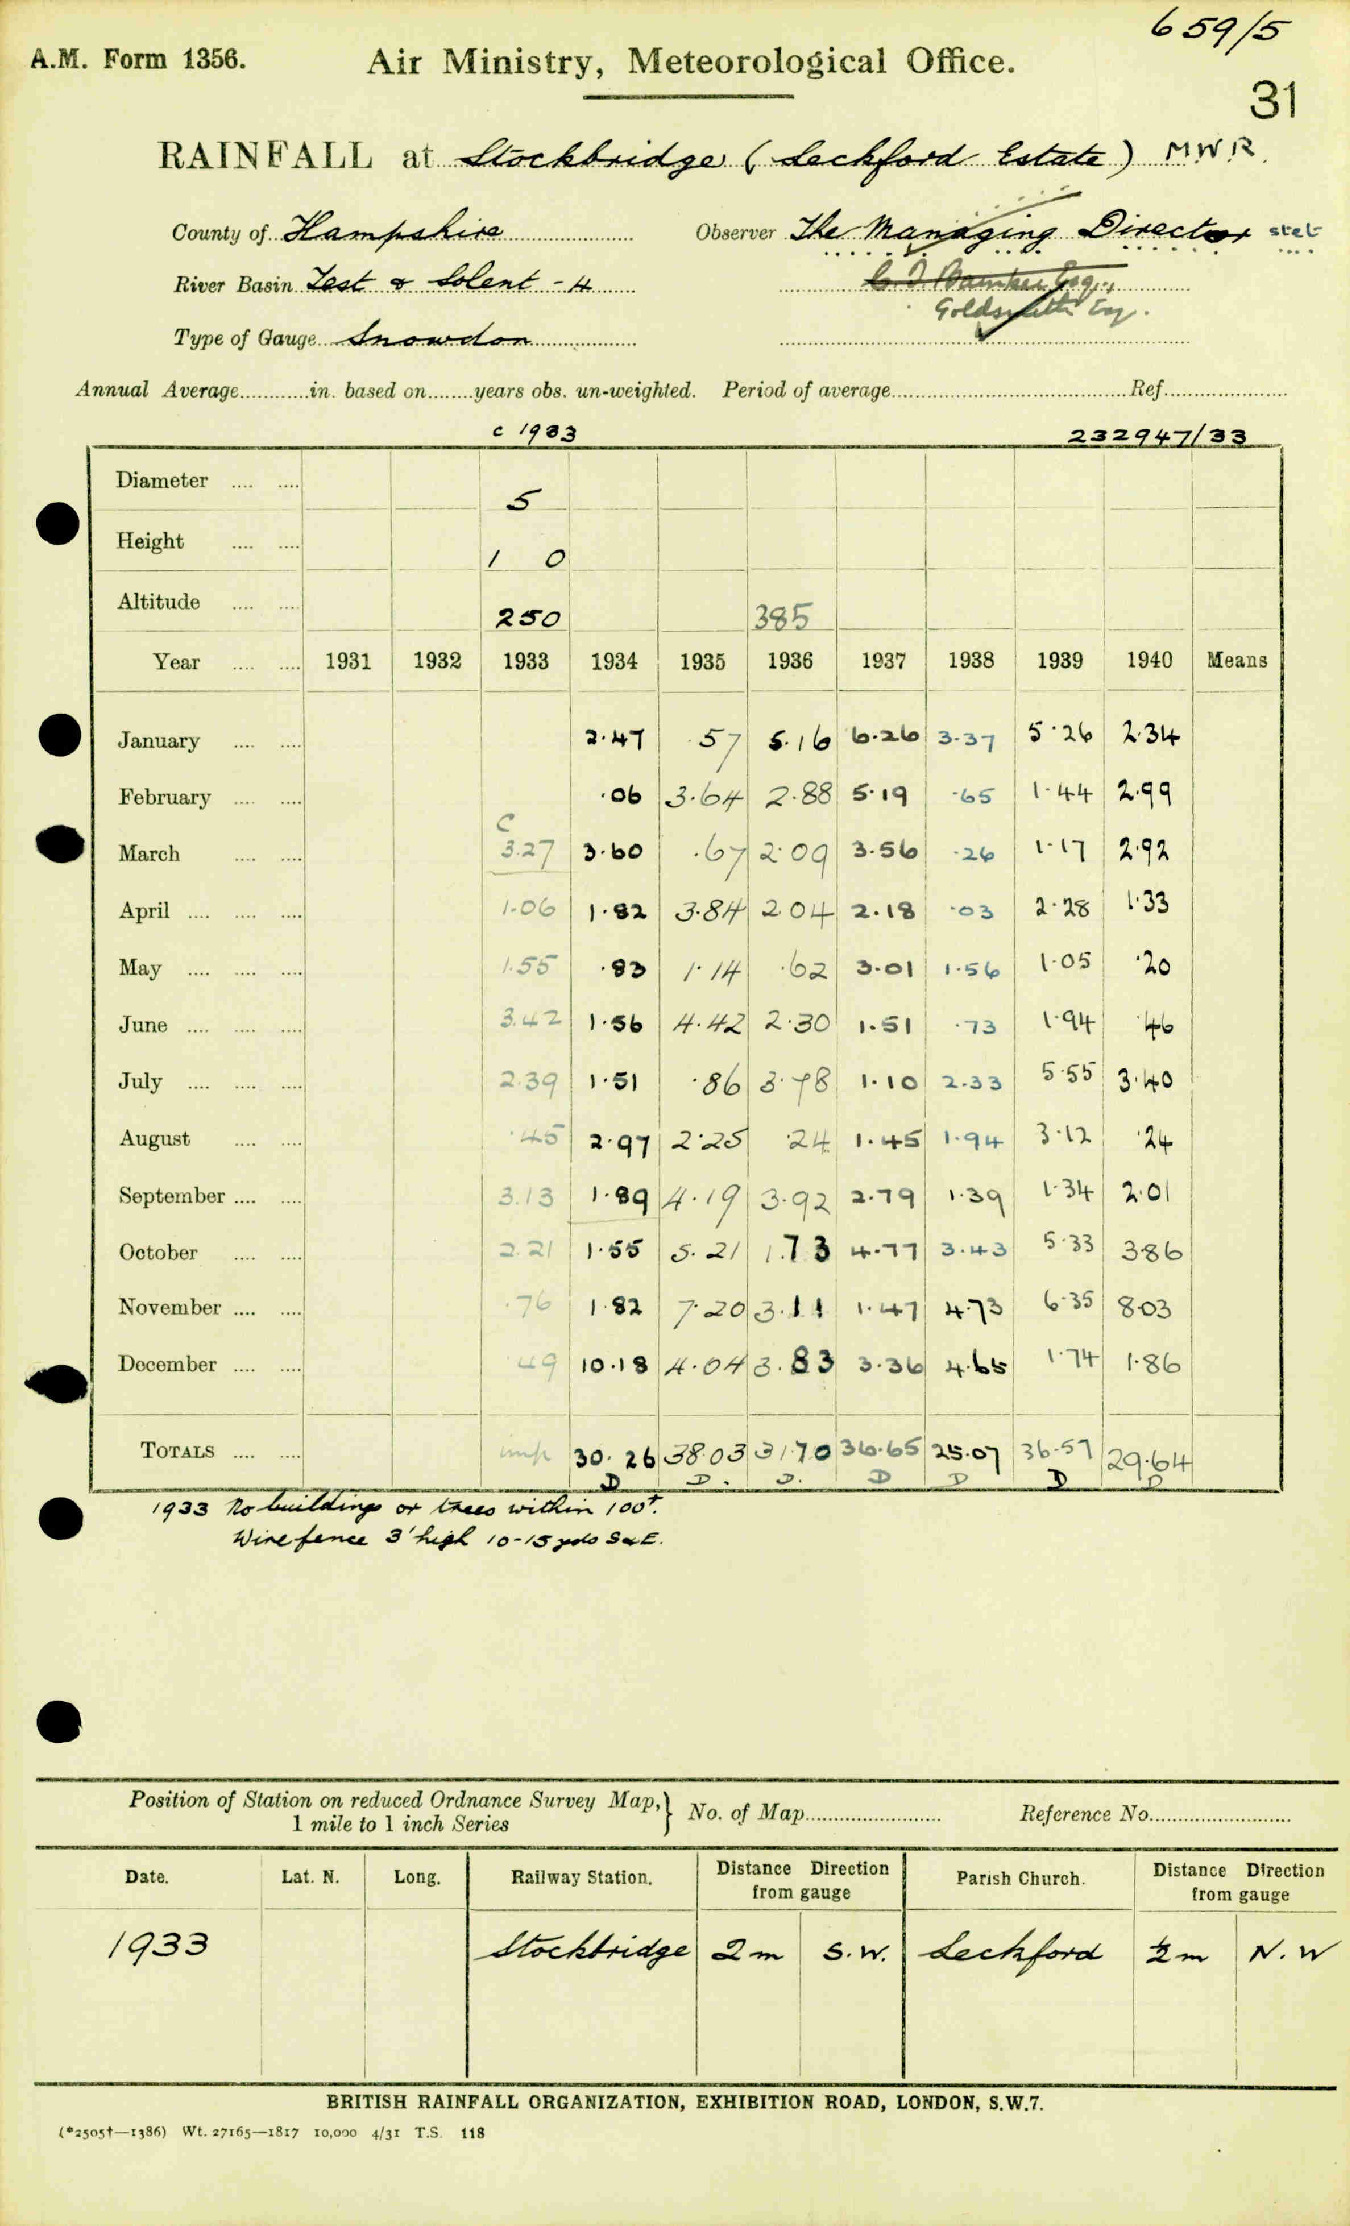 659/5
A.M. Form 1356. Air Ministry, Meteorological Office.
31
RAINFALL at Stockbridge (Leckford Estate) M.W.R.
County of Hampshire Observer The Managing Director stet
River Basin Test & Solent - 4 Esq.,
Goldsmith Esq.
Type of Gauge Snowdon
Annual Average............in. based on........years obs. un-weighted. Period of average............Ref............
c 1933 232947/33
Diameter .... .... 5
Height .... .... 1 0
Altitude .... .... 250 385
Year .... .... 1931 1932 1933 1934 1935 1936 1937 1938 1939 1940 Means
January .... .... 2.47 .57 5.16 6.26 3.37 5.26 2.34
February .... .... .06 3.64 2.88 5.19 .65 1.44 2.99
C
March .... .... 3.27 3.60 .67 2.09 3.56 .26 1.17 2.92
April .... .... .... 1.06 1.82 3.84 2.04 2.18 .03 2.28 1.33
May .... .... .... 1.55 .83 1.14 .62 3.01 1.56 1.05 .20
June .... .... .... 3.42 1.56 4.42 2.30 1.51 .73 1.94 .46
July .... .... .... 2.39 1.51 .86 3.78 1.10 2.33 5.55 3.40
August .... .... .45 2.97 2.25 .24 1.45 1.94 3.12 .24
September .... .... 3.13 1.89 4.19 3.92 2.79 1.39 1.34 2.01
October .... .... 2.21 1.55 5.21 1.73 4.77 3.43 5.33 3.86
November .... .... .76 1.82 7.20 3.11 1.47 4.73 6.35 8.03
December .... .... .49 10.18 4.04 3.83 3.36 4.65 1.74 1.86
TOTALS .... .... imp 30.26 38.03 31.70 36.65 25.07 36.57 29.64
D D. D. D D D D
1933 No buildings or trees within 100ft.
Wire fence 3' high 10-15 yds S & E.
Position of Station on reduced Ordnance Survey Map, 1 mile to 1 inch Series } No. of Map............ Reference No............
Date. Lat. N. Long. Railway Station. Distance Direction from gauge Parish Church. Distance Direction from gauge
1933 Stockbridge 2 m S.W. Leckford ½ m N.W
BRITISH RAINFALL ORGANIZATION, EXHIBITION ROAD, LONDON, S.W.7.
(*2505†—1386) Wt. 27165—1817 10,000 4/31 T.S. 118